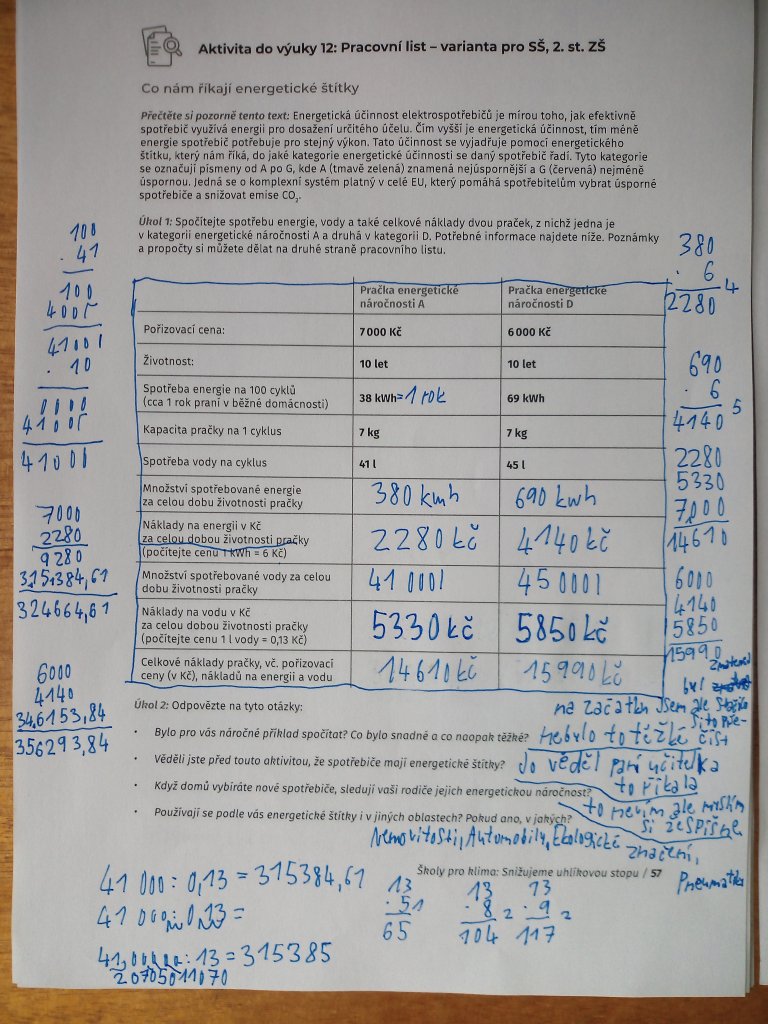 Aktivita do výuky 12: Pracovní list – varianta pro SŠ, 2. st. ZŠ
Co nám říkají energetické štítky
Přečtěte si pozorně tento text: Energetická účinnost elektrospotřebičů je mírou toho, jak efektivně
spotřebič využívá energii pro dosažení určitého účelu. Čím vyšší je energetická účinnost, tím méně
energie spotřebič potřebuje pro stejný výkon. Tato účinnost se vyjadřuje pomocí energetického
štítku, který nám říká, do jaké kategorie energetické účinnosti se daný spotřebič řadí. Tyto kategorie
se označují písmeny od A po G, kde A (tmavě zelená) znamená nejúspornější a G (červená) nejméně
úspornou. Jedná se o komplexní systém platný v celé EU, který pomáhá spotřebitelům vybrat úsporné
spotřebiče a snižovat emise CO₂.
Úkol 1: Spočítejte spotřebu energie, vody a také celkové náklady dvou praček, z nichž jedna je
v kategorii energetické náročnosti A a druhá v kategorii D. Potřebné informace najdete níže. Poznámky
a propočty si můžete dělat na druhé straně pracovního listu.
Pračka energetické
náročnosti A
Pračka energetické
náročnosti D
Pořizovací cena:
7 000 Kč
6 000 Kč
Životnost:
10 let
10 let
Spotřeba energie na 100 cyklů
(cca 1 rok praní v běžné domácnosti)
38 kWh = 1 rok
69 kWh
Kapacita pračky na 1 cyklus
7 kg
7 kg
Spotřeba vody na cyklus
41 l
45 l
Množství spotřebované energie
za celou dobu životnosti pračky
380 kmh
690 kwh
Náklady na energii v Kč
za celou dobou životnosti pračky
(počítejte cenu 1 kWh = 6 Kč)
2280 kč
4140 kč
Množství spotřebované vody za celou
dobu životnosti pračky
41 000l
45 000l
Náklady na vodu v Kč
za celou dobou životnosti pračky
(počítejte cenu 1 l vody = 0,13 Kč)
5330 kč
5850 kč
Celkové náklady pračky, vč. pořizovací
ceny (v Kč), nákladů na energii a vodu
14610 kč
15990 kč
100
. 41
100
400
4100l
. 10
0000
4100
41000l
7000
2280
9280
315384,61
324664,61
6000
4140
346153,84
356293,84
380
. 6
2280 4
690
. 6
4140 5
2280
5330
7000
14610
6000
4140
5850
15990
Úkol 2: Odpovězte na tyto otázky:
na začátku jsem ale
si to pře-
• Bylo pro vás náročné příklad spočítat? Co bylo snadné a co naopak těžké? nebylo to těžké číst
• Věděli jste před touto aktivitou, že spotřebiče mají energetické štítky? Jo věděl paní učitelka
to říkala
• Když domů vybíráte nové spotřebiče, sledují vaši rodiče jejich energetickou náročnost?
to nevím ale myslím
si že spíš ne
• Používají se podle vás energetické štítky i v jiných oblastech? Pokud ano, v jakých?
Nemovitosti, Automobily, Ekologické značení,
Pneumatika
Školy pro klima: Snižujeme uhlíkovou stopu / 57
41 000 : 0,13 = 315384,61
41 000 : 0,13 =
: 13 = 315385
20705011070
13
. 5 1
65
13
. 8 2
104
13
. 9 2
117